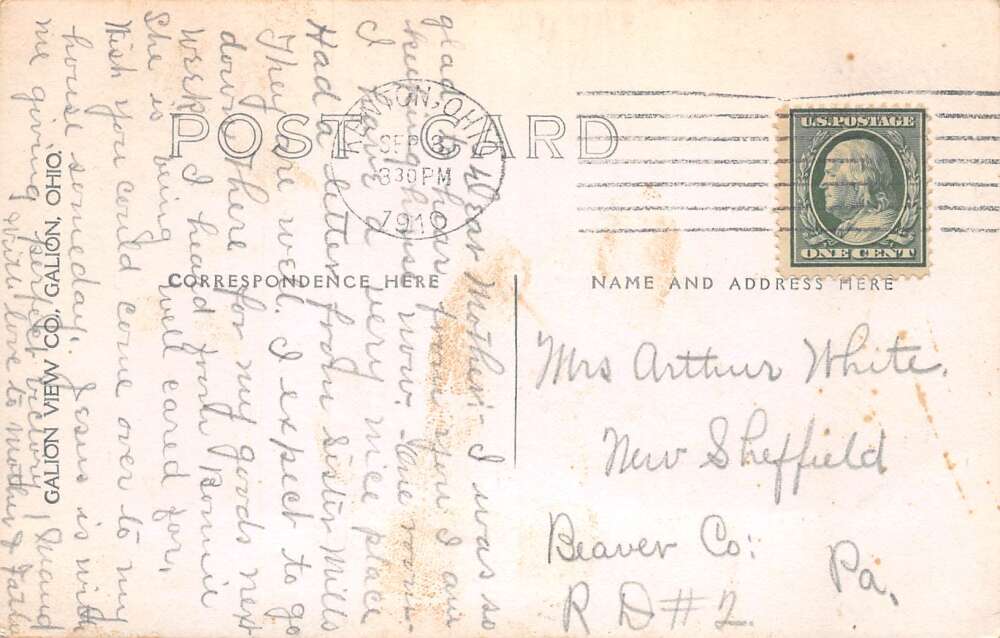 POST CARD
SEP
330 PM
1910
U.S. POSTAGE
ONE CENT
CORRESPONDENCE HERE
NAME AND ADDRESS HERE
GALION VIEW CO., GALION, OHIO.
Dear Mother:- I was so
glad to hear from you I am
keeping house now. One room-
I have a very nice place
Had a letter from Sister Mills
They are well. I expect to go
down there for my goods next
week. I heard from Bonnie
She is being well cared for.
Wish you could come over to my
house someday. Jesus is with
me giving perfect victory
Will love to mother &
Mrs Arthur White.
New Sheffield
Beaver Co:
Pa.
R D # 2